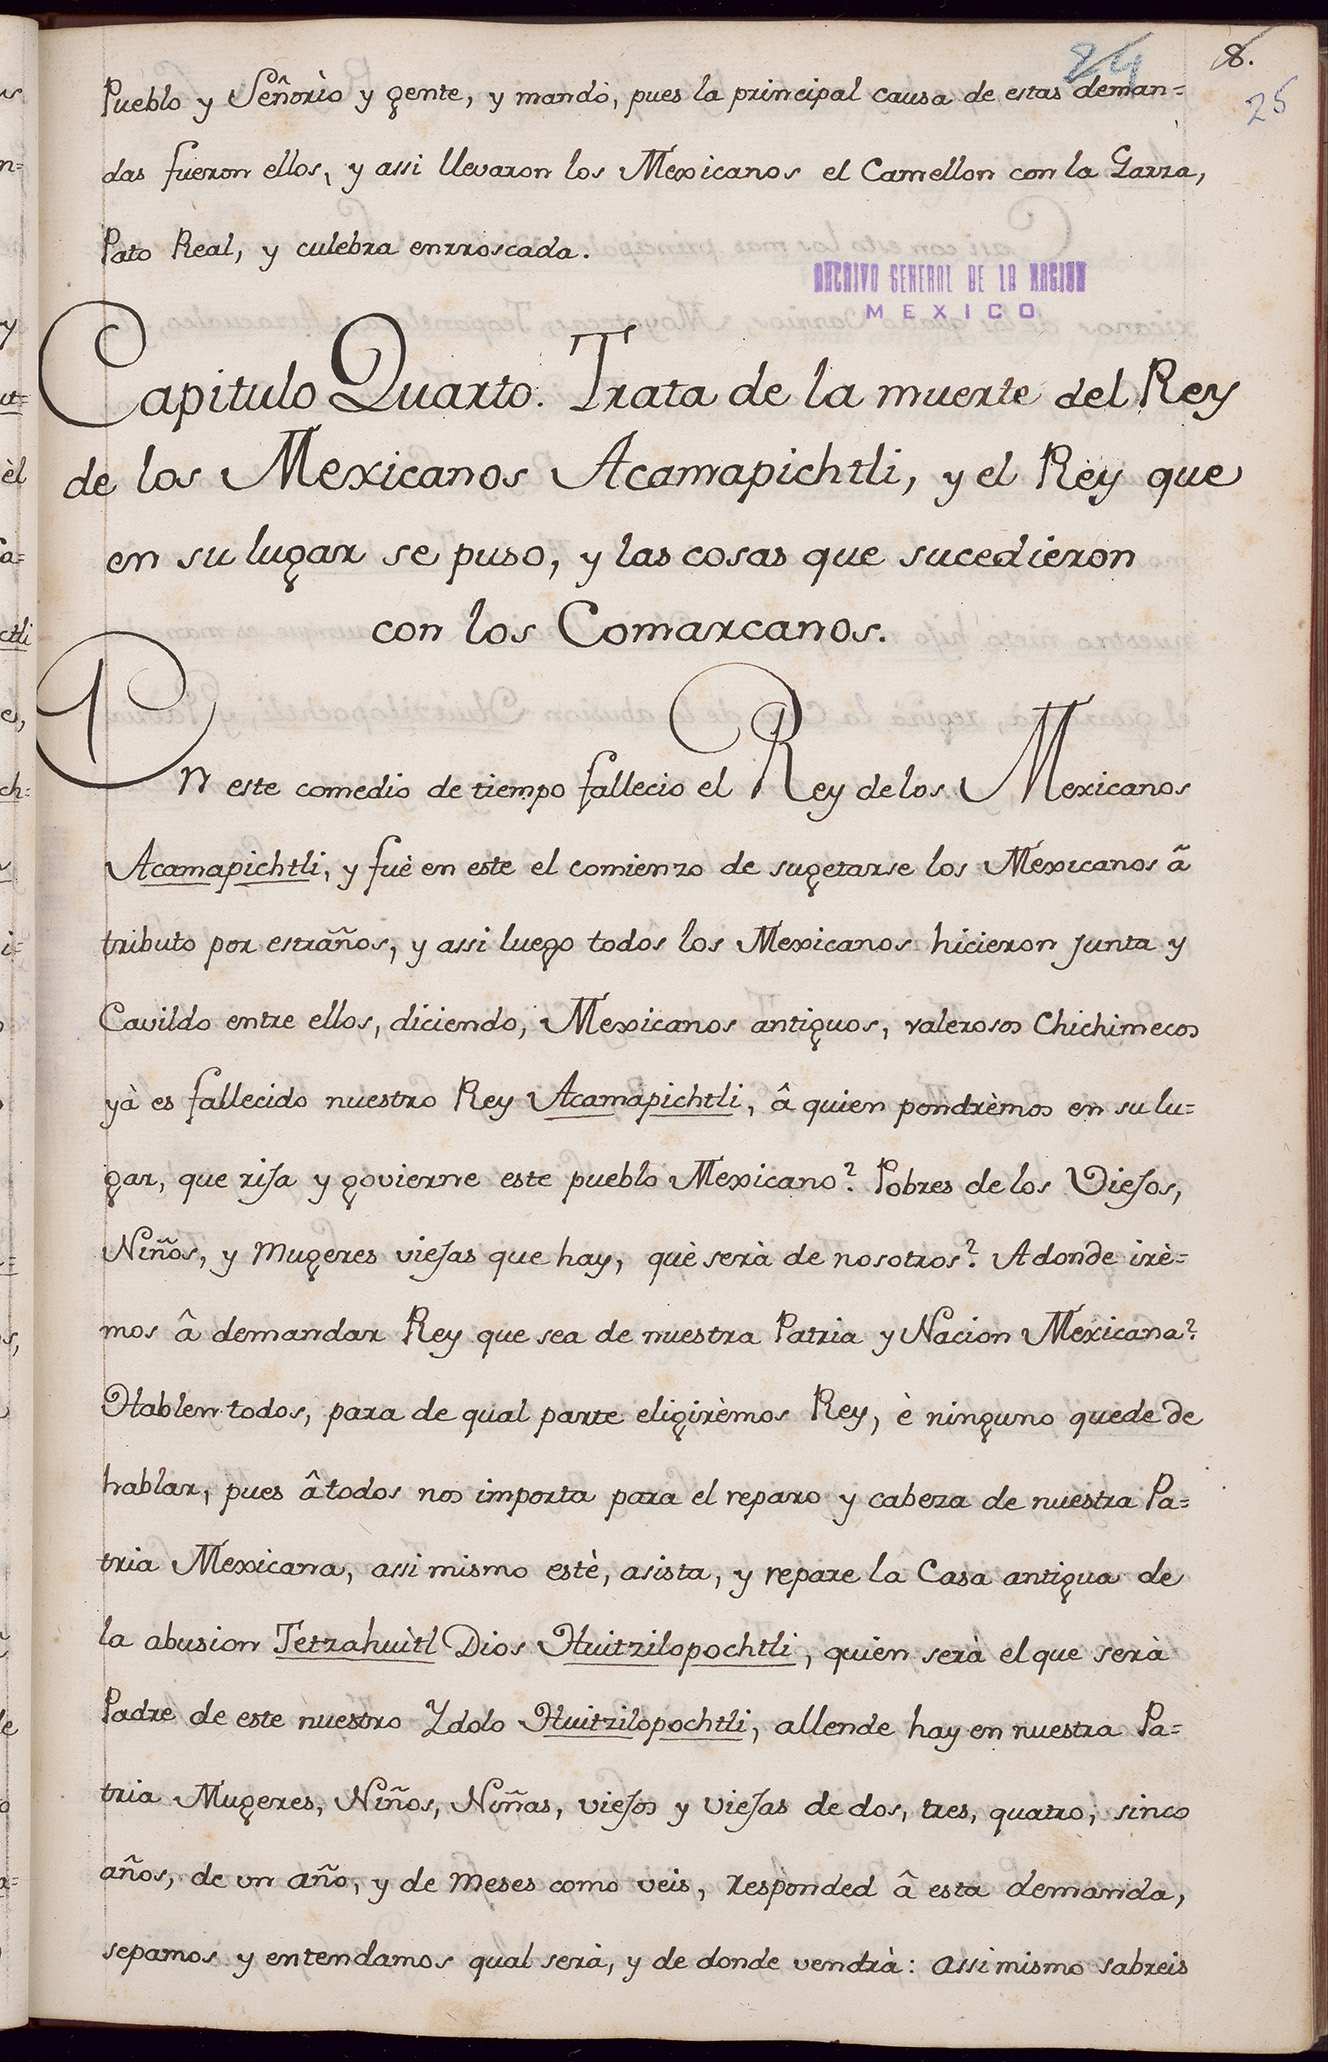 24
8.
25
Pueblo y Señorìo y gente, y mandò, pues la principal causa de estas deman=
das fueron ellos, y assi llevaron los Mexicanos el Camellon con la Garza,
Pato Real, y culebra enrroscada.
ARCHIVO GENERAL DE LA NACION
MEXICO
Capitulo Quarto. Trata de la muerte del Rey
de los Mexicanos Acamapichtli, y el Rey que
en su lugar se puso, y las cosas que sucedieron
con los Comarcanos.
En este comedio de tiempo fallecio el Rey de los Mexicanos
Acamapichtli, y fuè en este el comienzo de sugetarse los Mexicanos â
tributo por estraños, y assi luego todos los Mexicanos hicieron junta y
Cavildo entre ellos, diciendo, Mexicanos antiguos, valerosos Chichimecos
yà es fallecido nuestro Rey Acamapichtli, â quien pondrèmos en su lu=
gar, que rija y govierne este pueblo Mexicano? Pobres de los Viejos,
Niños, y Mugeres viejas que hay, què serà de nosotros? A donde irè=
mos â demandar Rey que sea de nuestra Patria y Nacion Mexicana?
Hablen todos, para de qual parte eligirèmos Rey, è ninguno quede de
hablar, pues â todos nos importa para el reparo y cabeza de nuestra Pa=
tria Mexicana, assi mismo estè, asista, y repare la Casa antigua de
la abusion Tetzahuìtl Dios Huitzilopochtli, quien serà el que serà
Padre de este nuestro Ydolo Huitzilopochtli, allende hay en nuestra Pa=
tria Mugeres, Niños, Niñas, viejos y viejas de dos, tres, quatro, sinco
años, de un año, y de meses como veis, responded â esta demanda,
sepamos y entendamos qual serà, y de donde vendrà: assi mismo sabreis